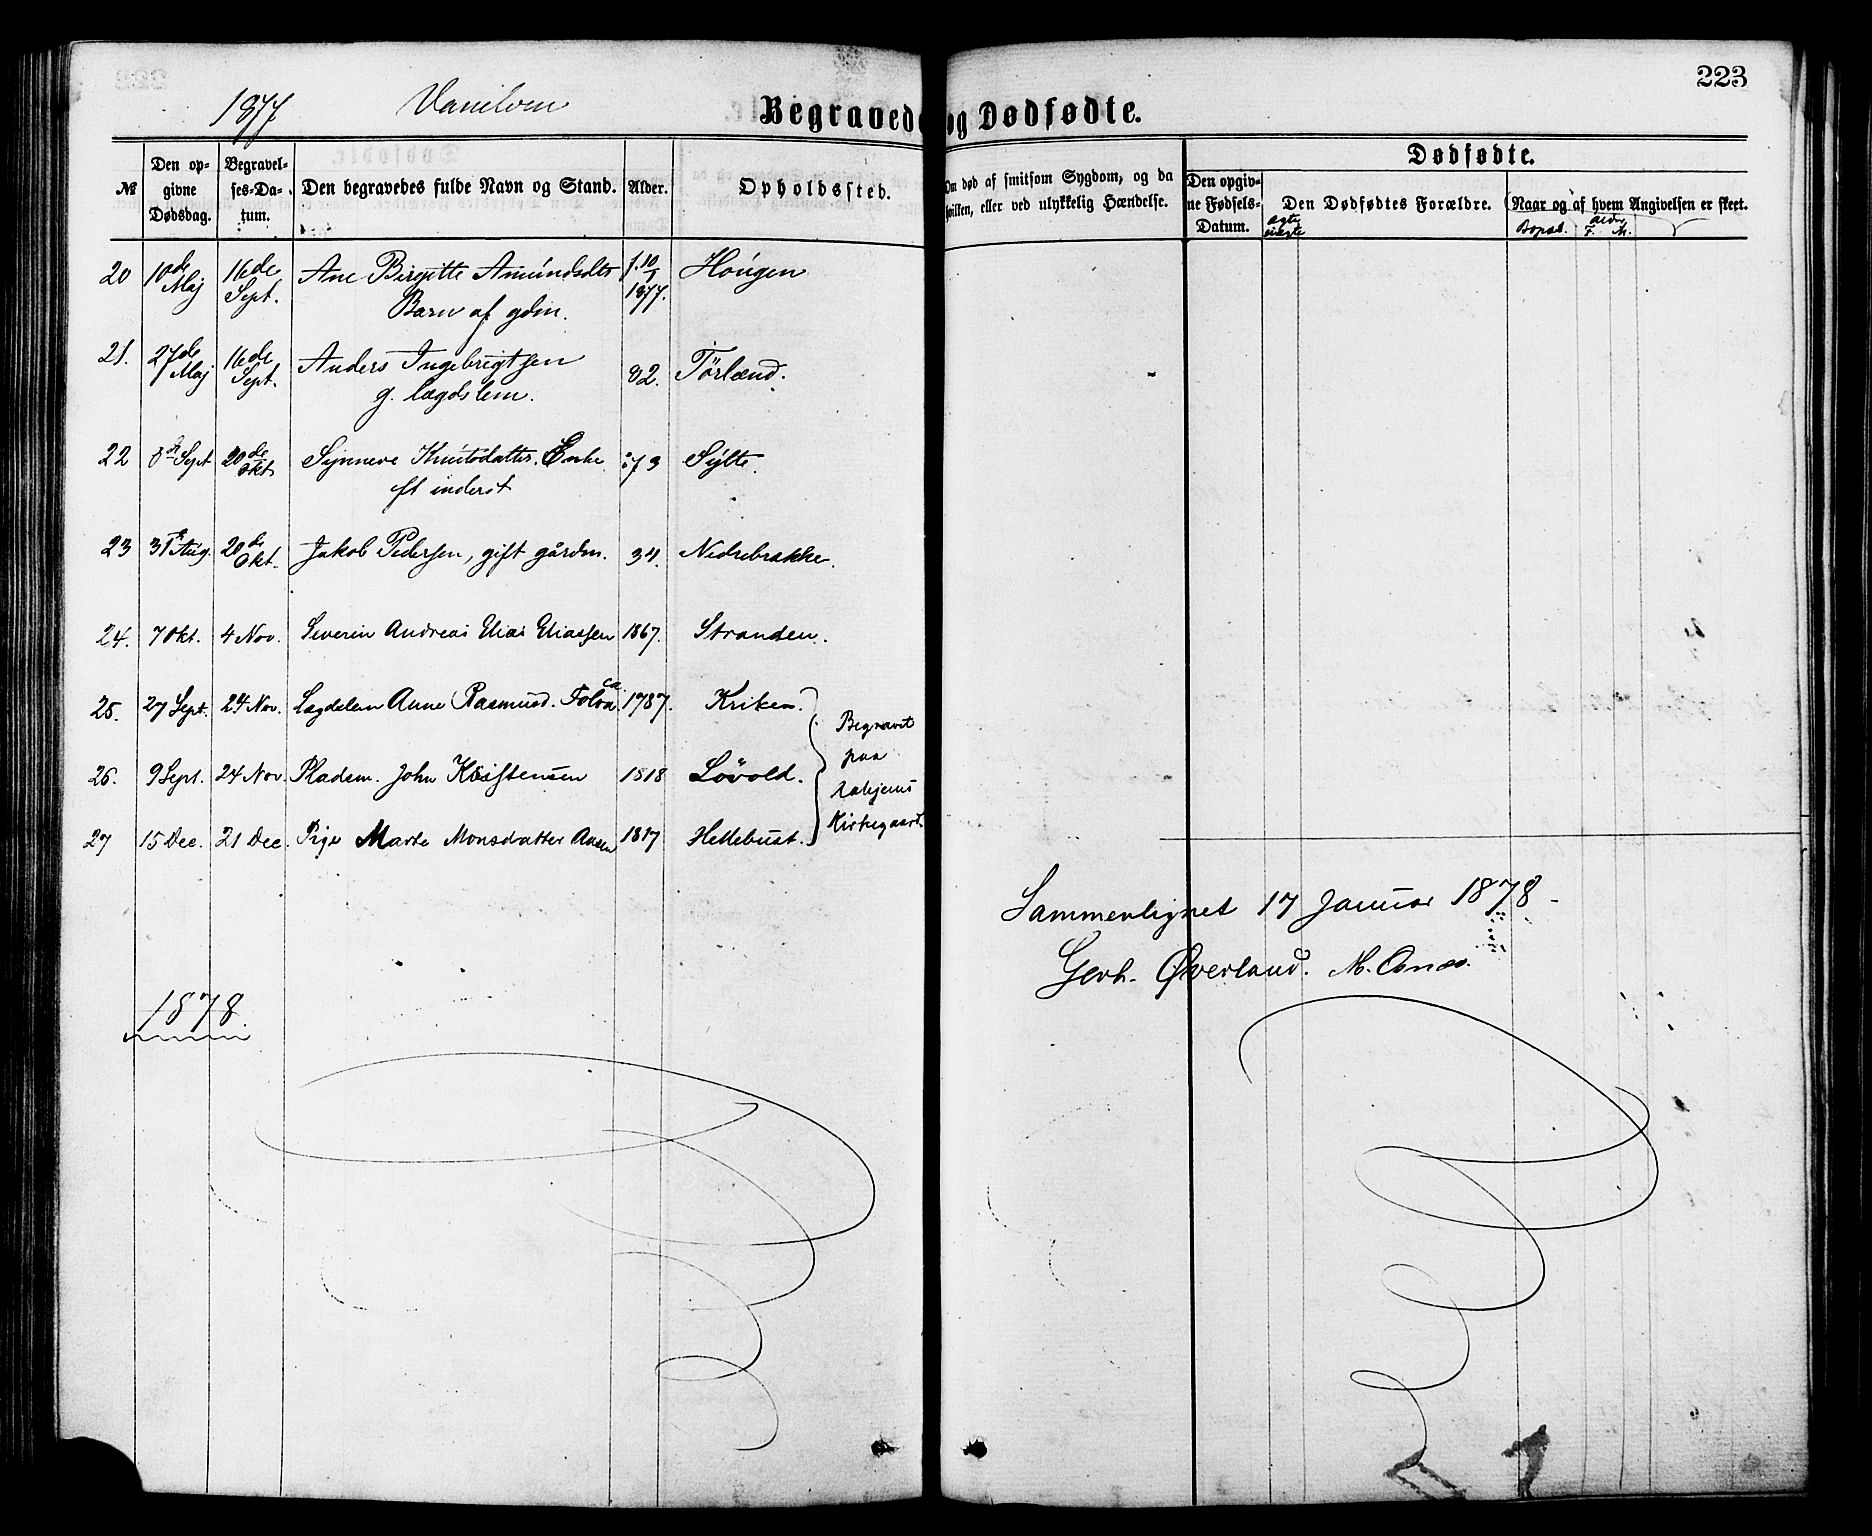 223
1877 Vanelven Begravede og Dødfødte.
Dødfødte.
№ Den opgivne Dødsdag. Begravelses-Datum. Den begravedes fulde Navn og Stand. Alder. Opholdssted. Om død af smitsom Sygdom, og da hvilken, eller ved ulykkelig Hændelse. Den opgivne Fødsels-Datum. Den Dødfødtes Forældre. Naar og af hvem Angivelsen er skeet.
ægte uægte Bopæl. Alder F. M.
20 10de Maj 16de Sept. Ane Birgitte Amundsdtr f. 10/5 1877. Hougen
Barn af gdm.
21. 27de Maj 16de Sept. Anders Ingebrigtsen 82. Tørlænd.
g. lægdslem.
22 8de Sept 20de Okt Synneve Knutsdatter. Enke 73 Sylte.
ft inderst
23 31te Aug. 20de Okt. Jakob Pedersen, gift gårdm. 34. Nedrebrække.
24. 7 Okt. 4 Nov. Severin Andreas Elias Eliassen 1867. Stranden.
25. 27 Sept. 24 Nov. Lægdslem Anne Rasmusd. ca 1787. Kriken.
26. 9 Sept. 24 Nov. Pladsm. John Kristensen 1818 Løvold.
27 15 Dec. 21 Dec. Pige Marte Monsdatter Aasen 1817 Hellebust.
Begravet
paa
Kirkegaard.
Sammenlignet 17 Januar 1878
Gerh. Øverland. M. Aanæs.
1878.